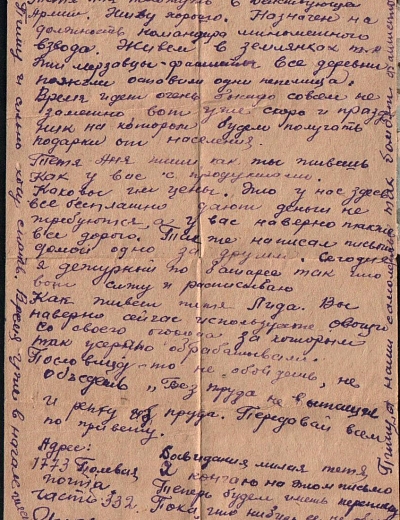 Тётя Аня нахожусь в действующей
Армии. Живу хорошо. Назначен на
должность командира миномётного
взвода. Живём в землянках т.к.
эти мерзавцы-фашисты все деревни
пожгли оставили одни пепелища.
Время идёт очень быстро совсем не
заметно вот уже скоро и празд
ник на котором будем получать
подарки от населения.
Тётя Аня пиши как ты живёшь
Как у вас с продуктами.
Каковы им цены. Это у нас здесь
всё бесплатно дают деньги не
требуются а у вас наверно
все дорого. написал письмо
домой одно за другим. Сегодня
я дежурный по батарее так что
вот сижу и расписываю
Как живёт тётя Лида. Вы
наверно сейчас используете овощи
со своего огорода за которым
так усердно обрабатывали.
Пословица-то не обойдёшь, не
объедешь "Без труда не вытащишь
и репку из пруда. Передавай всем
по привету.
Адрес:
1773 Полевая
почта
часть 332.
Досвидания милая тётя
Я кончаю на этом письмо
Теперь будем иметь переписку
Пока что
Пишу а сильно хочу спать. Время уже
Пишу, а наши самолёты так бомбят